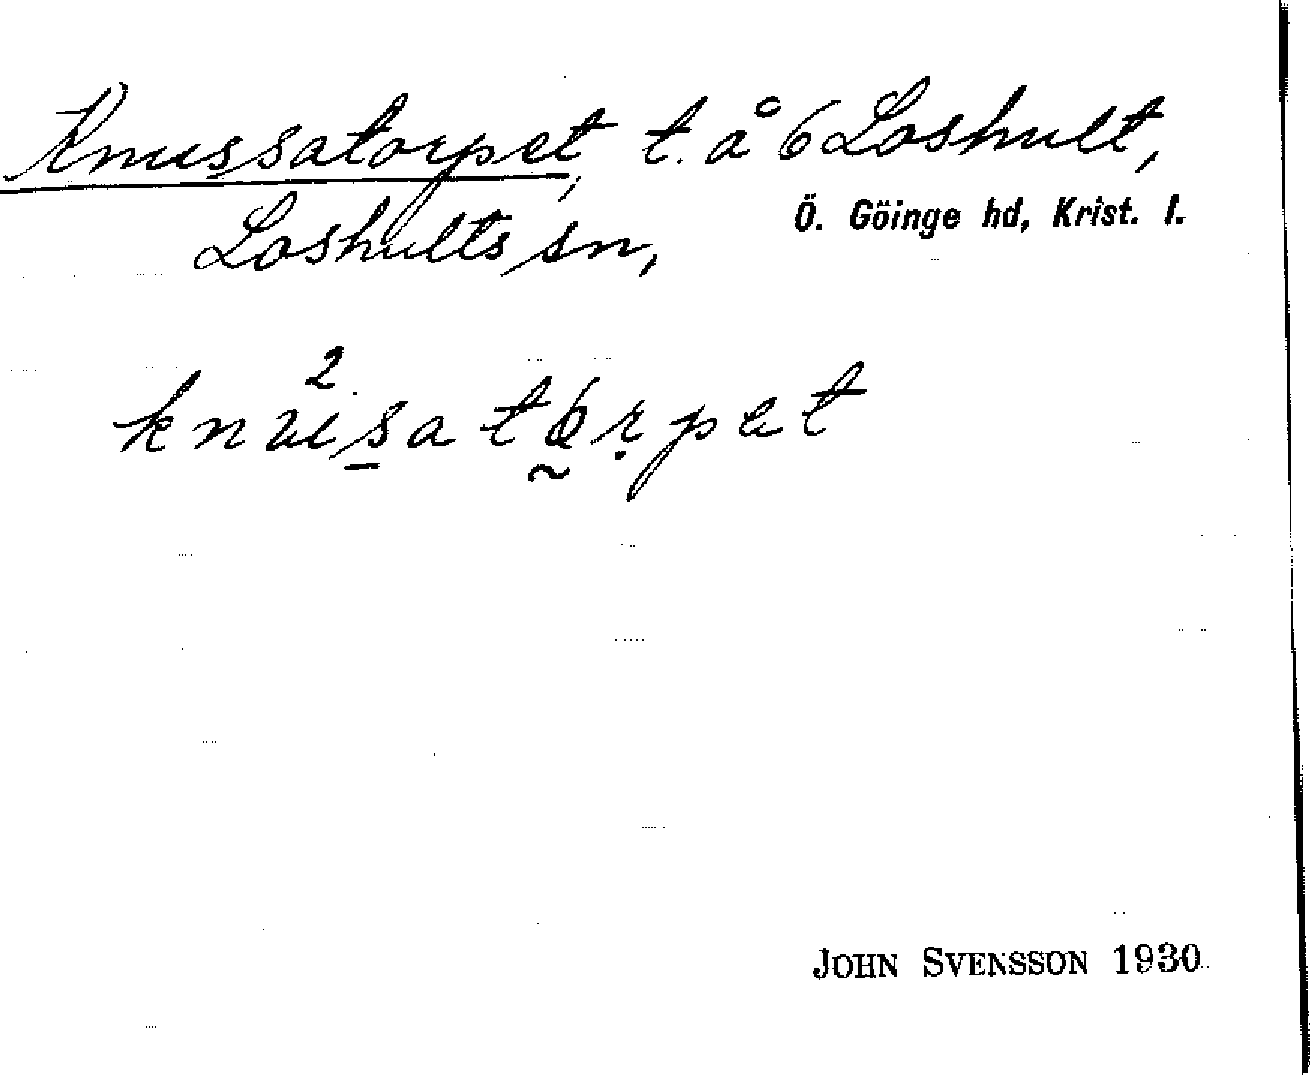 Knussatorpet, t. å 6 Loshult,
Loshults sn, Ö. Göinge hd, Krist. l.
2
knusatorpet
JOHN SVENSSON 1930